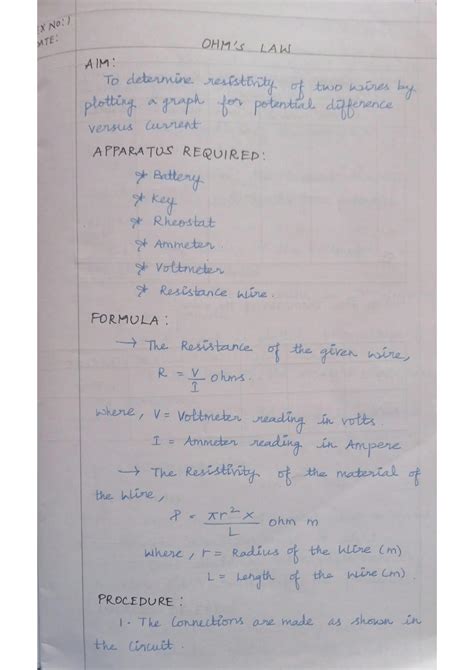 EX NO: 1
DATE:
OHM'S LAW
AIM:
To determine resistivity of two wires by
plotting a graph for potential difference
versus current
APPARATUS REQUIRED:
* Battery
* Key
* Rheostat
* Ammeter.
* Voltmeter
* Resistance wire.
FORMULA:
→ The Resistance of the given wire,
R = V/I ohms.
where, V = Voltmeter reading in volts
I = Ammeter reading in Ampere
→ The Resistivity of the material of
the wire,
ρ = πr²X/L ohm m
where, r = Radius of the wire (m)
L = Length of the wire (m)
PROCEDURE:
1. The connections are made as shown in
the circuit.